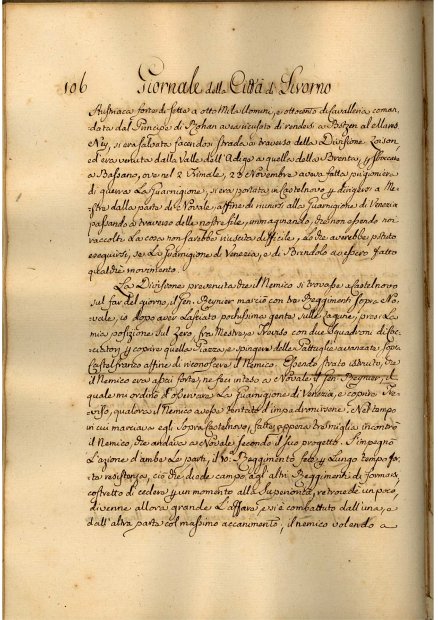 106 Giornale della Città di Livorno
Austriaca forte di sette a otto Mila Uomini, e ottocento di Cavalleria coman-
data dal Principe di Rohan aveva ricusato di rendersi a Botzen al Mares.
Ney, si era salvata facendosi strada a traverso della Divisione Loison
ed era venuta dalla Valle dell'Adige a quella della Brenta, e sboccata
a Bassano, ove nel 2 Frimale, 23 Novembre aveva fatta prigioniera
di guerra La Guarnigione, si era portata in Castelnovo e dirigersi a Me-
stre dalla parte di Novale, affine di riunirsi alla Guarnigione di Venezia
passando a traverso delle nostre file, immaginando, che non essendo noi
raccolti La cosa non sarebbe riuscita difficile, lo che averebbe potuto
eseguirsi, se La Guarnigione di Venezia, e di Brindolo avessero fatto
qualche movimento.
La Divisione prevenuta che il Nemico si trovasse a Castelnovo
sul far del giorno, il Gen. Reynier marciò con tre Reggimenti sopra No-
vale, io dopo aver Lasciato pochissima gente sulle Lagune, presi La
mia posizione sul Zero, fra Mestre, e Treviso con due Squadroni di Cac-
ciatori, per coprire quella Piazza, e spingere delle Pattuglie avanzate sopra
Castelfranco affine di riconoscere il Nemico. Essendo stato istruito, che
il Nemico era assai forte, ne feci inteso a Novale il Gen. Reynier, il
quale mi ordinò d'osservare La Guarnigione di Venezia, e coprire Tre-
viso, qualora il Nemico avesse tentato d'impadronirsene. Nel tempo
in cui marciava egli sopra Castelnovo, fatte appena tre miglia incontrò
il Nemico, che andava a Novale secondo il suo progetto. S'impegnò
L'azione d'ambe Le parti, il 10.° Reggimento fece per Lungo tempo for-
te resistenza, ciò che diede campo agl'altri Reggimenti di formarsi,
costretto di cedere per un momento alla Superiorità, retrocede un poco,
divenne allora grande L'affare, e vi è combattuto dall'una, e
dall'altra parte col massimo accanimento, il nemico volendo a